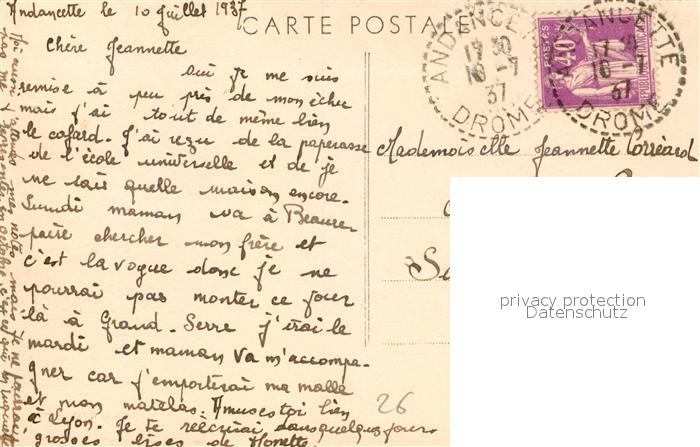 Andancette le 10 juillet 1937
CARTE POSTALE
Chère Jeannette
Oui je me suis
remise à peu près de mon échec
mais j'ai tout de même bien
le cafard. J'ai reçu de la paperasse
de l'école universelle et de je
ne sais quelle maison encore.
Lundi maman va à Beaure-
paire chercher mon frère et
c'est la vogue donc je ne
pourrai pas monter ce jour
là à Grand-Serre j'irai le
mardi et maman va m'accompa-
gner car j'emporterai ma malle
et mon matelas. Amuses toi bien
à Lyon. Je te réécrirai dans quelques jours
grosses bises de
Mademoiselle Jeannette
26
ANDANCETTE
17 30
10 -7
37
DROME
POSTES
40c
ANDANCETTE
10 -7
37
DROME
privacy protection
Datenschutz